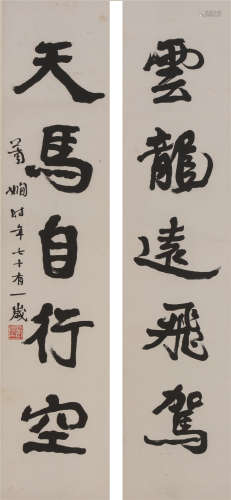 雲龍遠飛駕
天馬自行空
蕭嫻時年七十有一歲